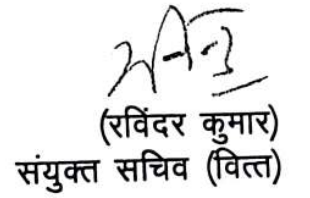 (रविंदर कुमार)
संयुक्त सचिव (वित्त)